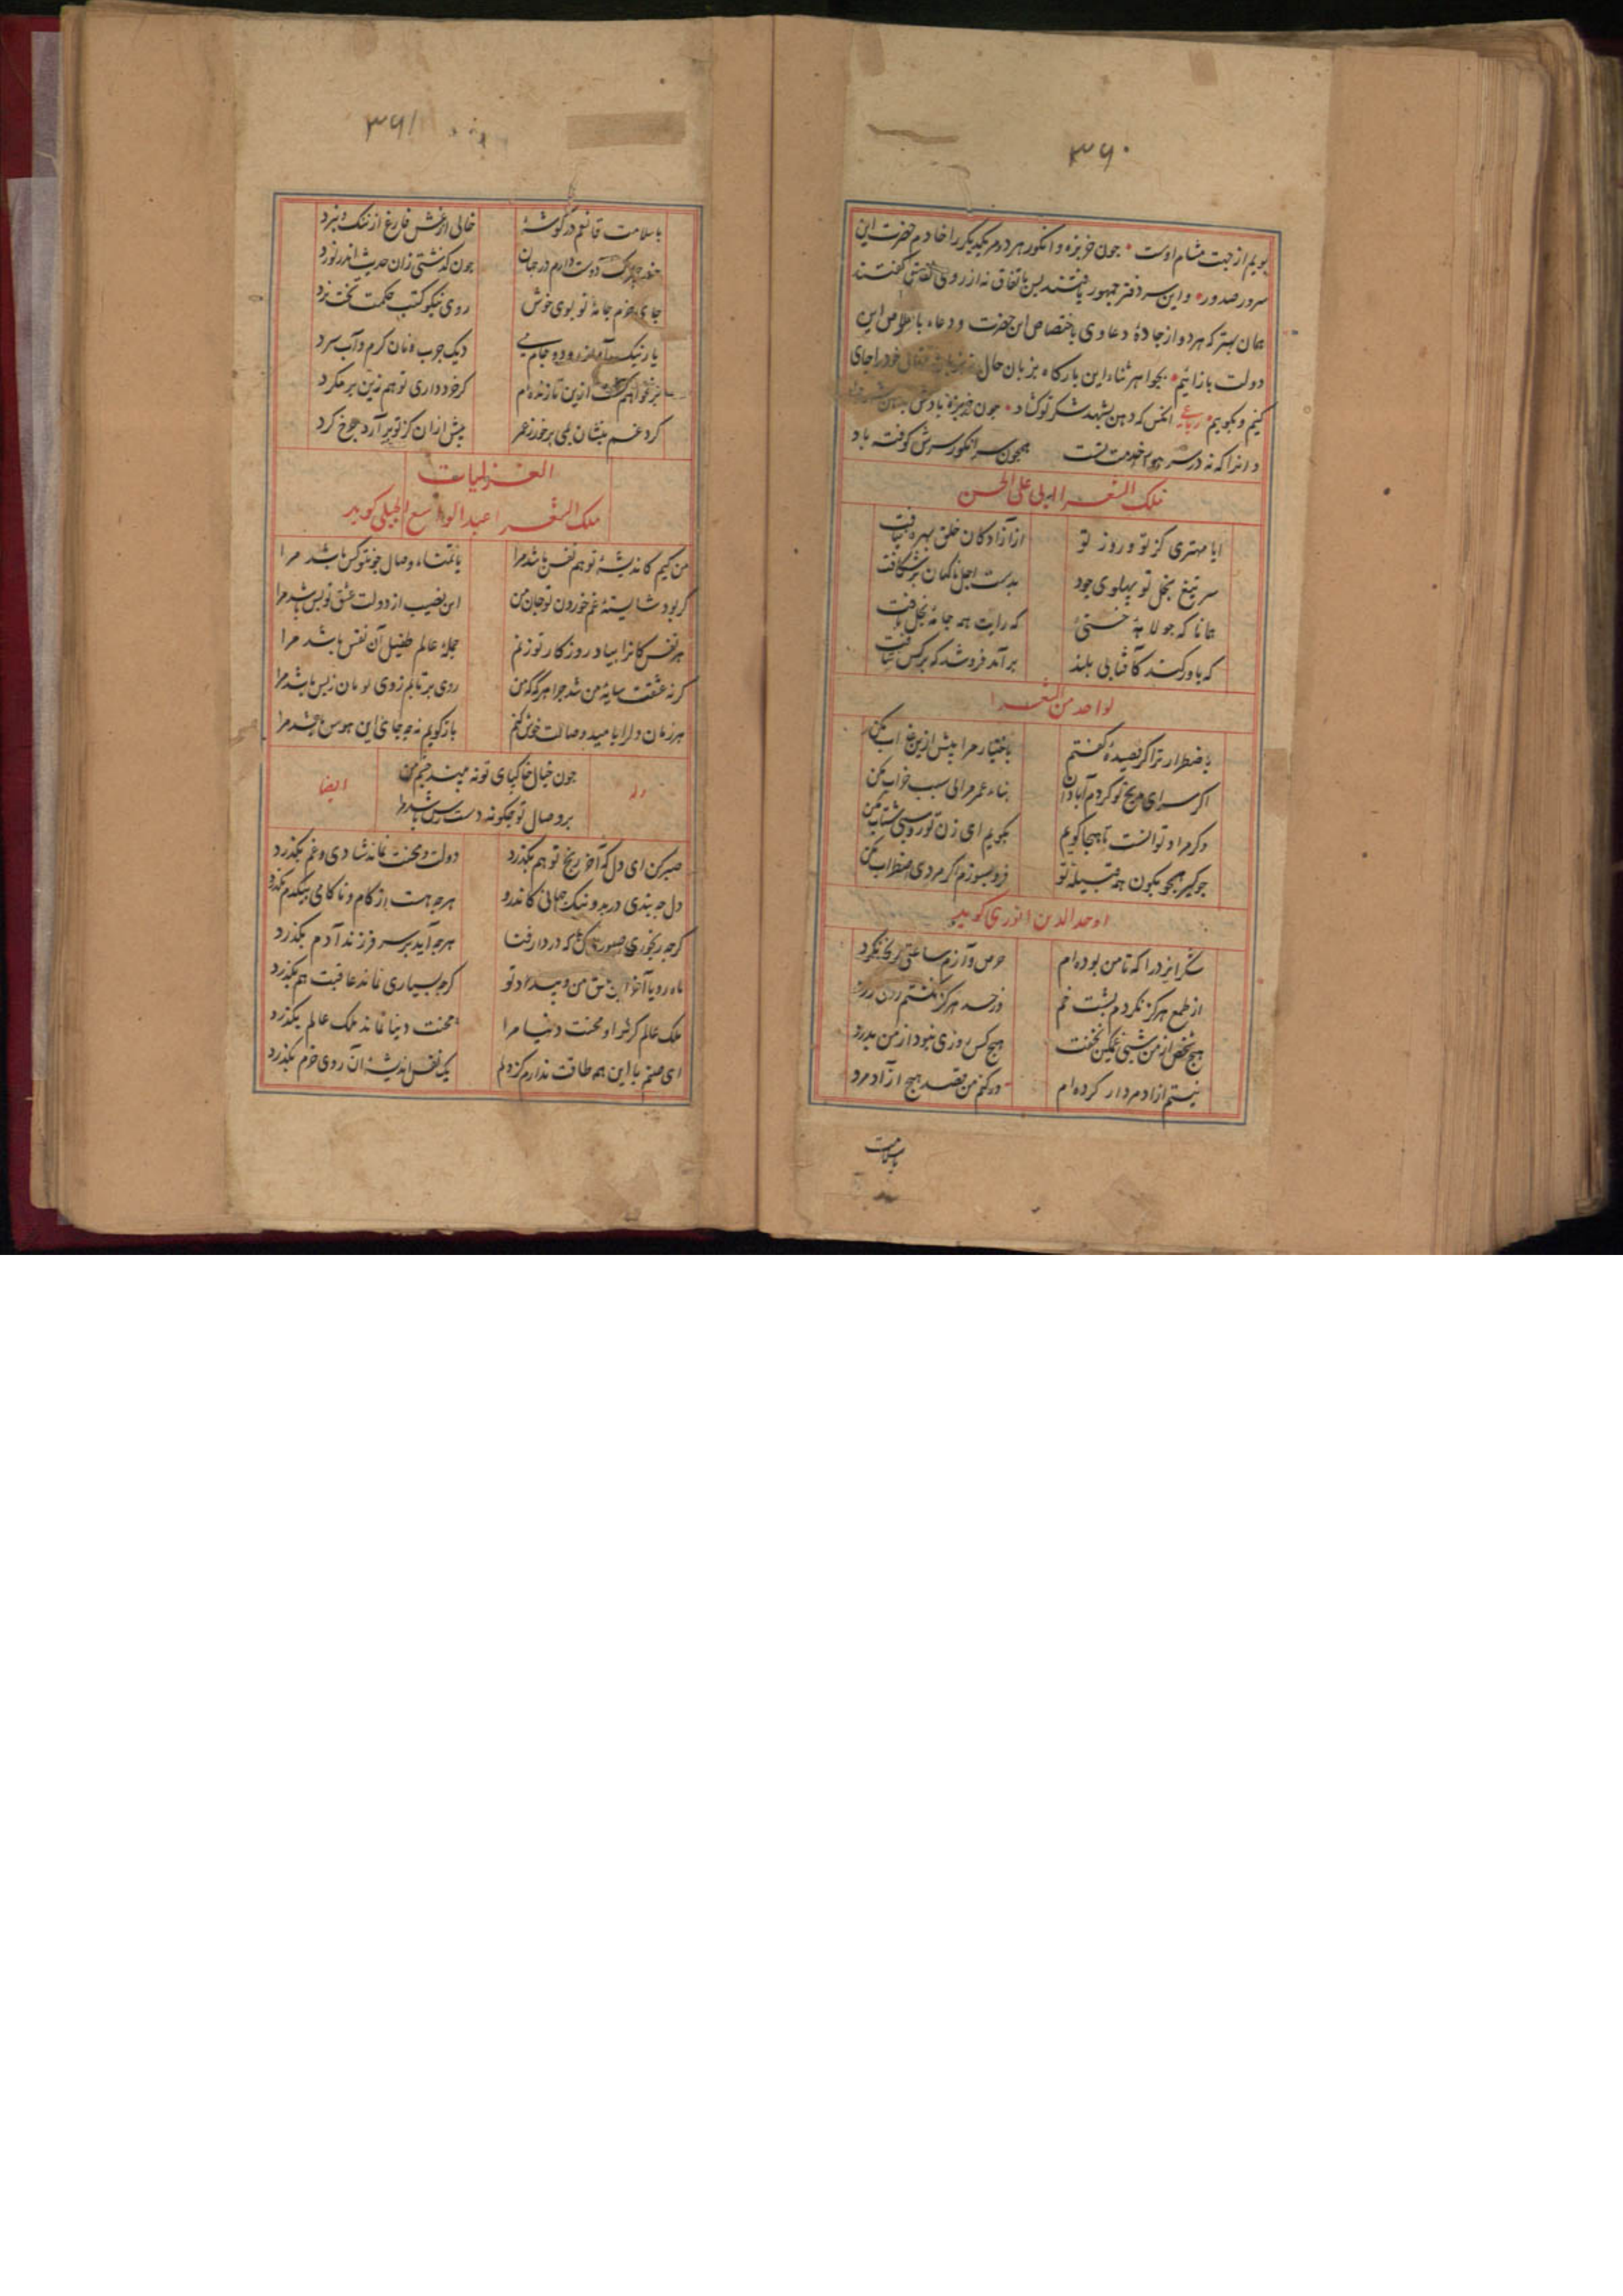 ۳۶۰
بویم از جهت مشام اوست جون خربزه و انکور هر دو مر یکدیکر را خادم حضرت این
سرور صدور و این سر دفتر جمهور یافتند پس باتفاق نه از روی کفتند
همان بهتر که هر دو از جادهٔ دعاوی باختصاص این حضرت و دعاء با خلاص این
دولت باز آئیم بجواهر ثناء این بارکاه بزبان حال خود را جای
کنیم و بکوییم رباعی انکس که دهن بشهد شکر تو کشاد جون خربزه بادش
و انرا که نه در سر هوس خدمت تست همجون سر انکور سرش کوفته باد
ملک الشعرا ابی علی الحسن
ایا مهتری کز تو و روز تو از آزادکان خلق بهره نیافت
سر تیغ بخل تو پهلوی جود بدست اجل ناکهان برشکافت
همانا که جولاهه که رایت همه جامهٔ بخل بافت
که باور کند کآفتابی بلند بر آمد فرو شد که بر کس نتافت
لواحد من الشعرا
باضطرار ترا کر قصیدهٔ کفتم باختیار مرا بیش ازین عذاب مکن
اکر سرای مدیح تو کردم آبادان بناء عمر مرا بی سبب خراب مکن
وکر مراد تو انست تا هجا کویم بکویم ای زن تو روسبی شتاب مکن
همه قبیله تو فرو بسوزم اکر مردی اضطراب مکن
اوحد الدین انوری کوید
شکر ایزد را که تا من بوده‌ام حرص و آزم ساعتی رنجه نکرد
از طمع هرکز نکردم پشت خم وز حسد هرکز نکشتم روی زرد
هیج شخص از من شبی غمکین نخفت هیج کس روزی نبود از من بدرد
نیستم ازاد مرد ار کرده‌ام ور کنم من قصد هیج ازاد مرد
باسلامت
۳۶۱
باسلامت قانعم در کوشهٔ خالی از غش فارغ از ننک و نبرد
دوست دارم در جهان جون کذشتی زان حدیث اندر نورد
جای خرم جامهٔ نو بوی خوش روی نیکو کتب حکمت تخت نرد
یار نیک رود و جام می دیک جرب و نان کرم و آب سرد
برنخواهم کشت ازین تا زنده‌ام کر خرد داری تو هم زین بر مکرد
کرد غم بنشان بمی بر خور ز عمر پیش ازان کز تو بر آرد جرخ کرد
الغزلیات
ملک الشعرا عبد الواسع الجبلی کوید
من کیم کاندیشهٔ تو هم نفس باشد مرا یا تمناء وصال جون تو کس باشد مرا
کر بود شایستهٔ غم خوردن تو جان من این نصیب از دولت عشق تو بس باشد مرا
هر نفس کانرا بیاد روزکار تو زنم جملهٔ عالم طفیل آن نفس باشد مرا
کر نه عشقت سایهٔ من شد جرا هرکه که من روی بر تابم ز وی او مان ز پس باشد مرا
هر زمان دلرا بامید وصالت خوش کنم باز کویم نه جه جای این هوس باشد مرا
جون خیال خاکپای تو نه بیند جشم من
بر وصال تو جکونه دست رس باشد مرا
وله ایضا
صبر کن ای دل که آخر رنج تو هم بکذرد دولت و محنت نماند شادی و غم بکذرد
دل جه بندی در بد و نیک جهانی کاندرو هرجه هست از کام و ناکامی بیکدم بکذرد
کرجه رنجوری صبوری کن که در دار فنا هرجه آید بر سر فرزند آدم بکذرد
ماه رویا آخر این عشق من و بیداد تو کرجه بسیاری نماند عاقبت هم بکذرد
ملک عالم کر ترا و محنت دنیا مرا محنت دنیا نماند ملک عالم بکذرد
ای صنم با این همه طاقت ندارم کز دلم یک نفس اندیشهٔ آن روی خرم بکذرد